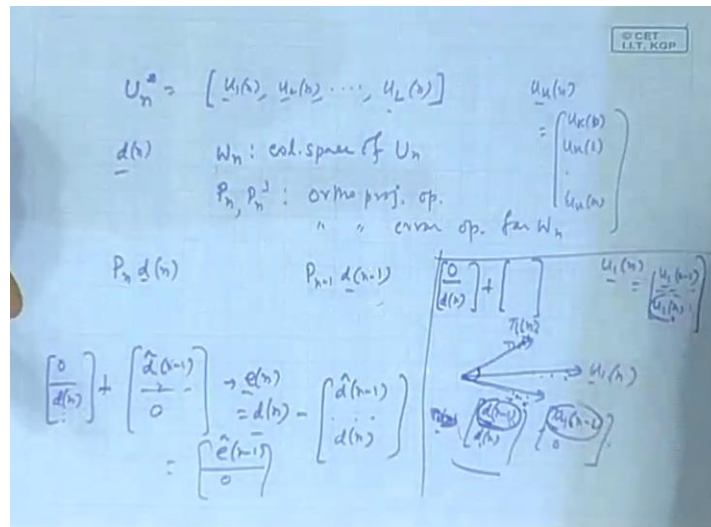 © CET
I.I.T. KGP
U_n = [u_1(n), u_2(n), ...., u_L(n)]
u_k(n) = [u_k(0) u_k(1) . u_k(n)]
d(n) W_n : col. space of U_n
P_n, P_n^⊥ : ortho proj. op.
" " error op. for W_n
P_n d(n) P_{n-1} d(n-1)
[0 / d(n)] + [ ]
u_1(n) = [u_1(n-1) / u_1(n)]
π(n)
u_1(n)
[0 / d(n)] + [d̂(n-1) / 0] → e(n)
= d(n) - [d̂(n-1) ... d(n)]
= [ê(n-1) / 0]
[d(n-1) d(n)] [u_1(n-1) 0]